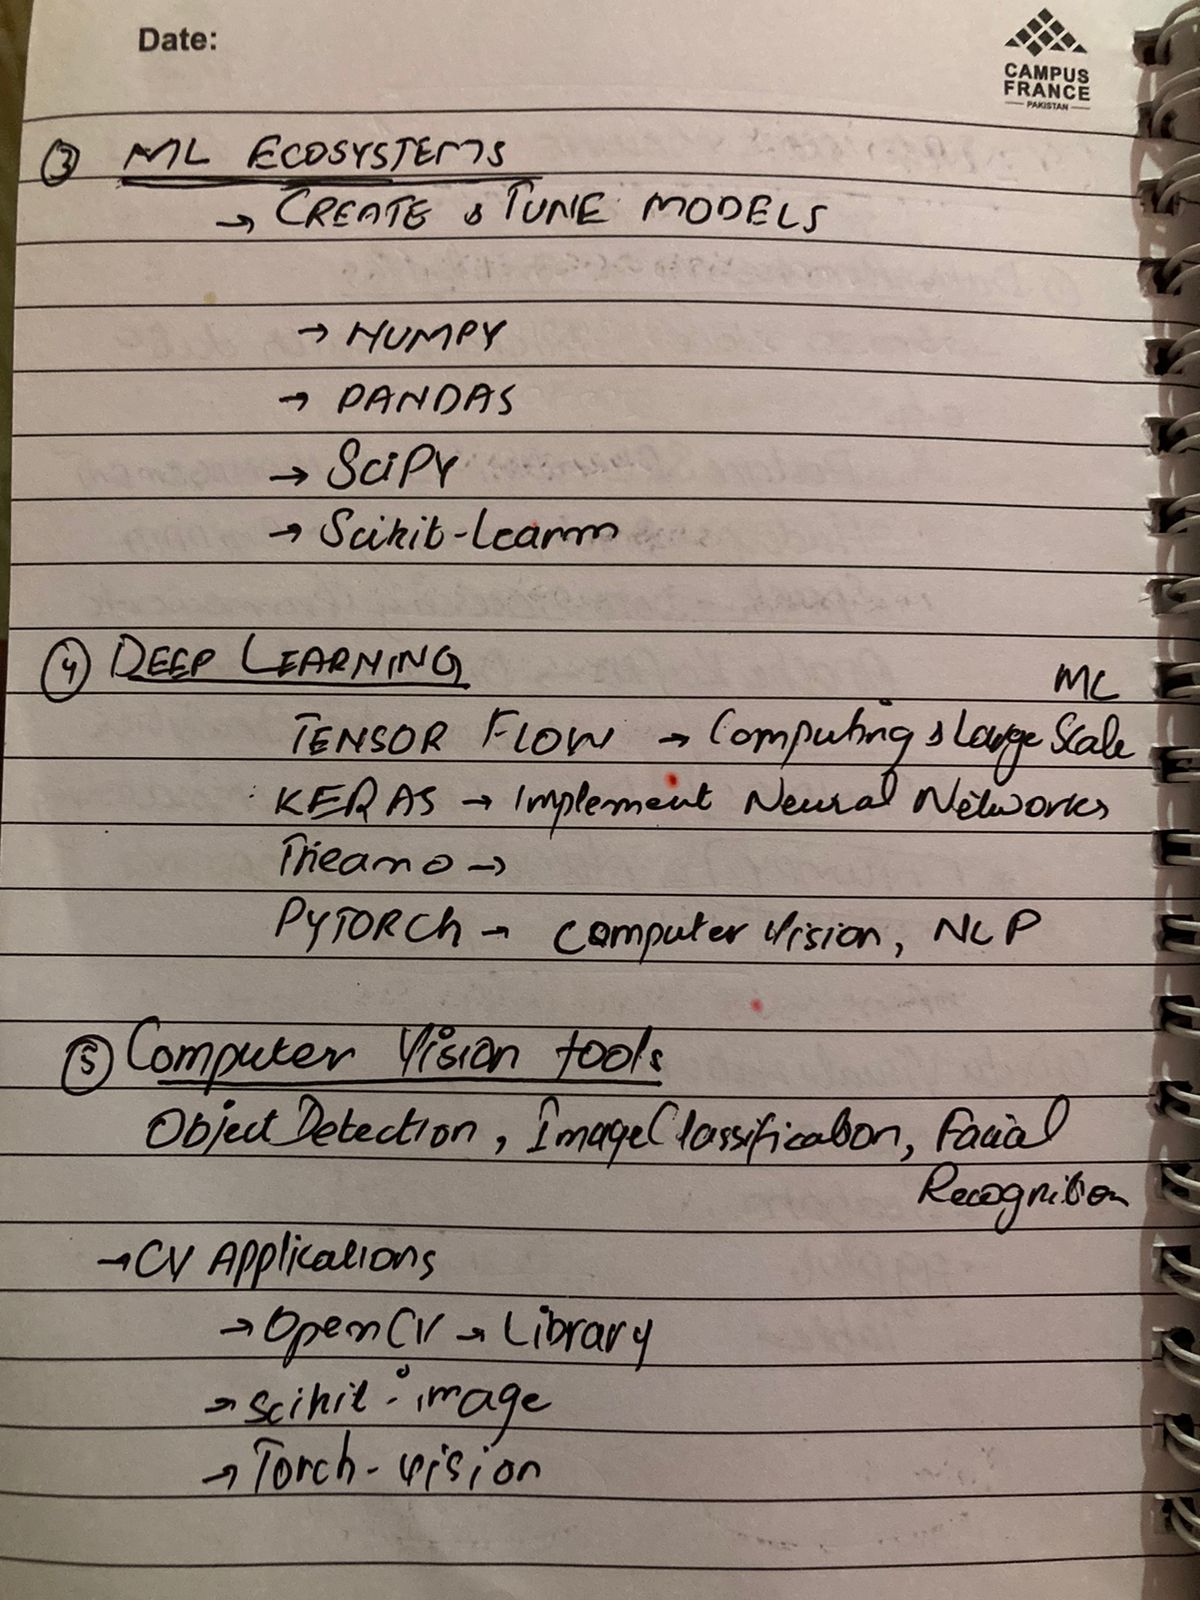 Date:
CAMPUS
FRANCE
PAKISTAN
③ ML ECOSYSTEMS
→ CREATE & TUNE MODELS
→ NUMPY
→ PANDAS
→ SciPY
→ Scikit-Learn
④ DEEP LEARNING
ML
TENSOR FLOW → Computing & Large Scale
KERAS → Implement Neural Networks
Theano →
PYTORCh → Computer Vision, NLP
⑤ Computer Vision tools
Object Detection, Image Classification, Facial
Recognition
→ CV Applications
→ OpenCV → Library
→ scikit-image
→ Torch-vision